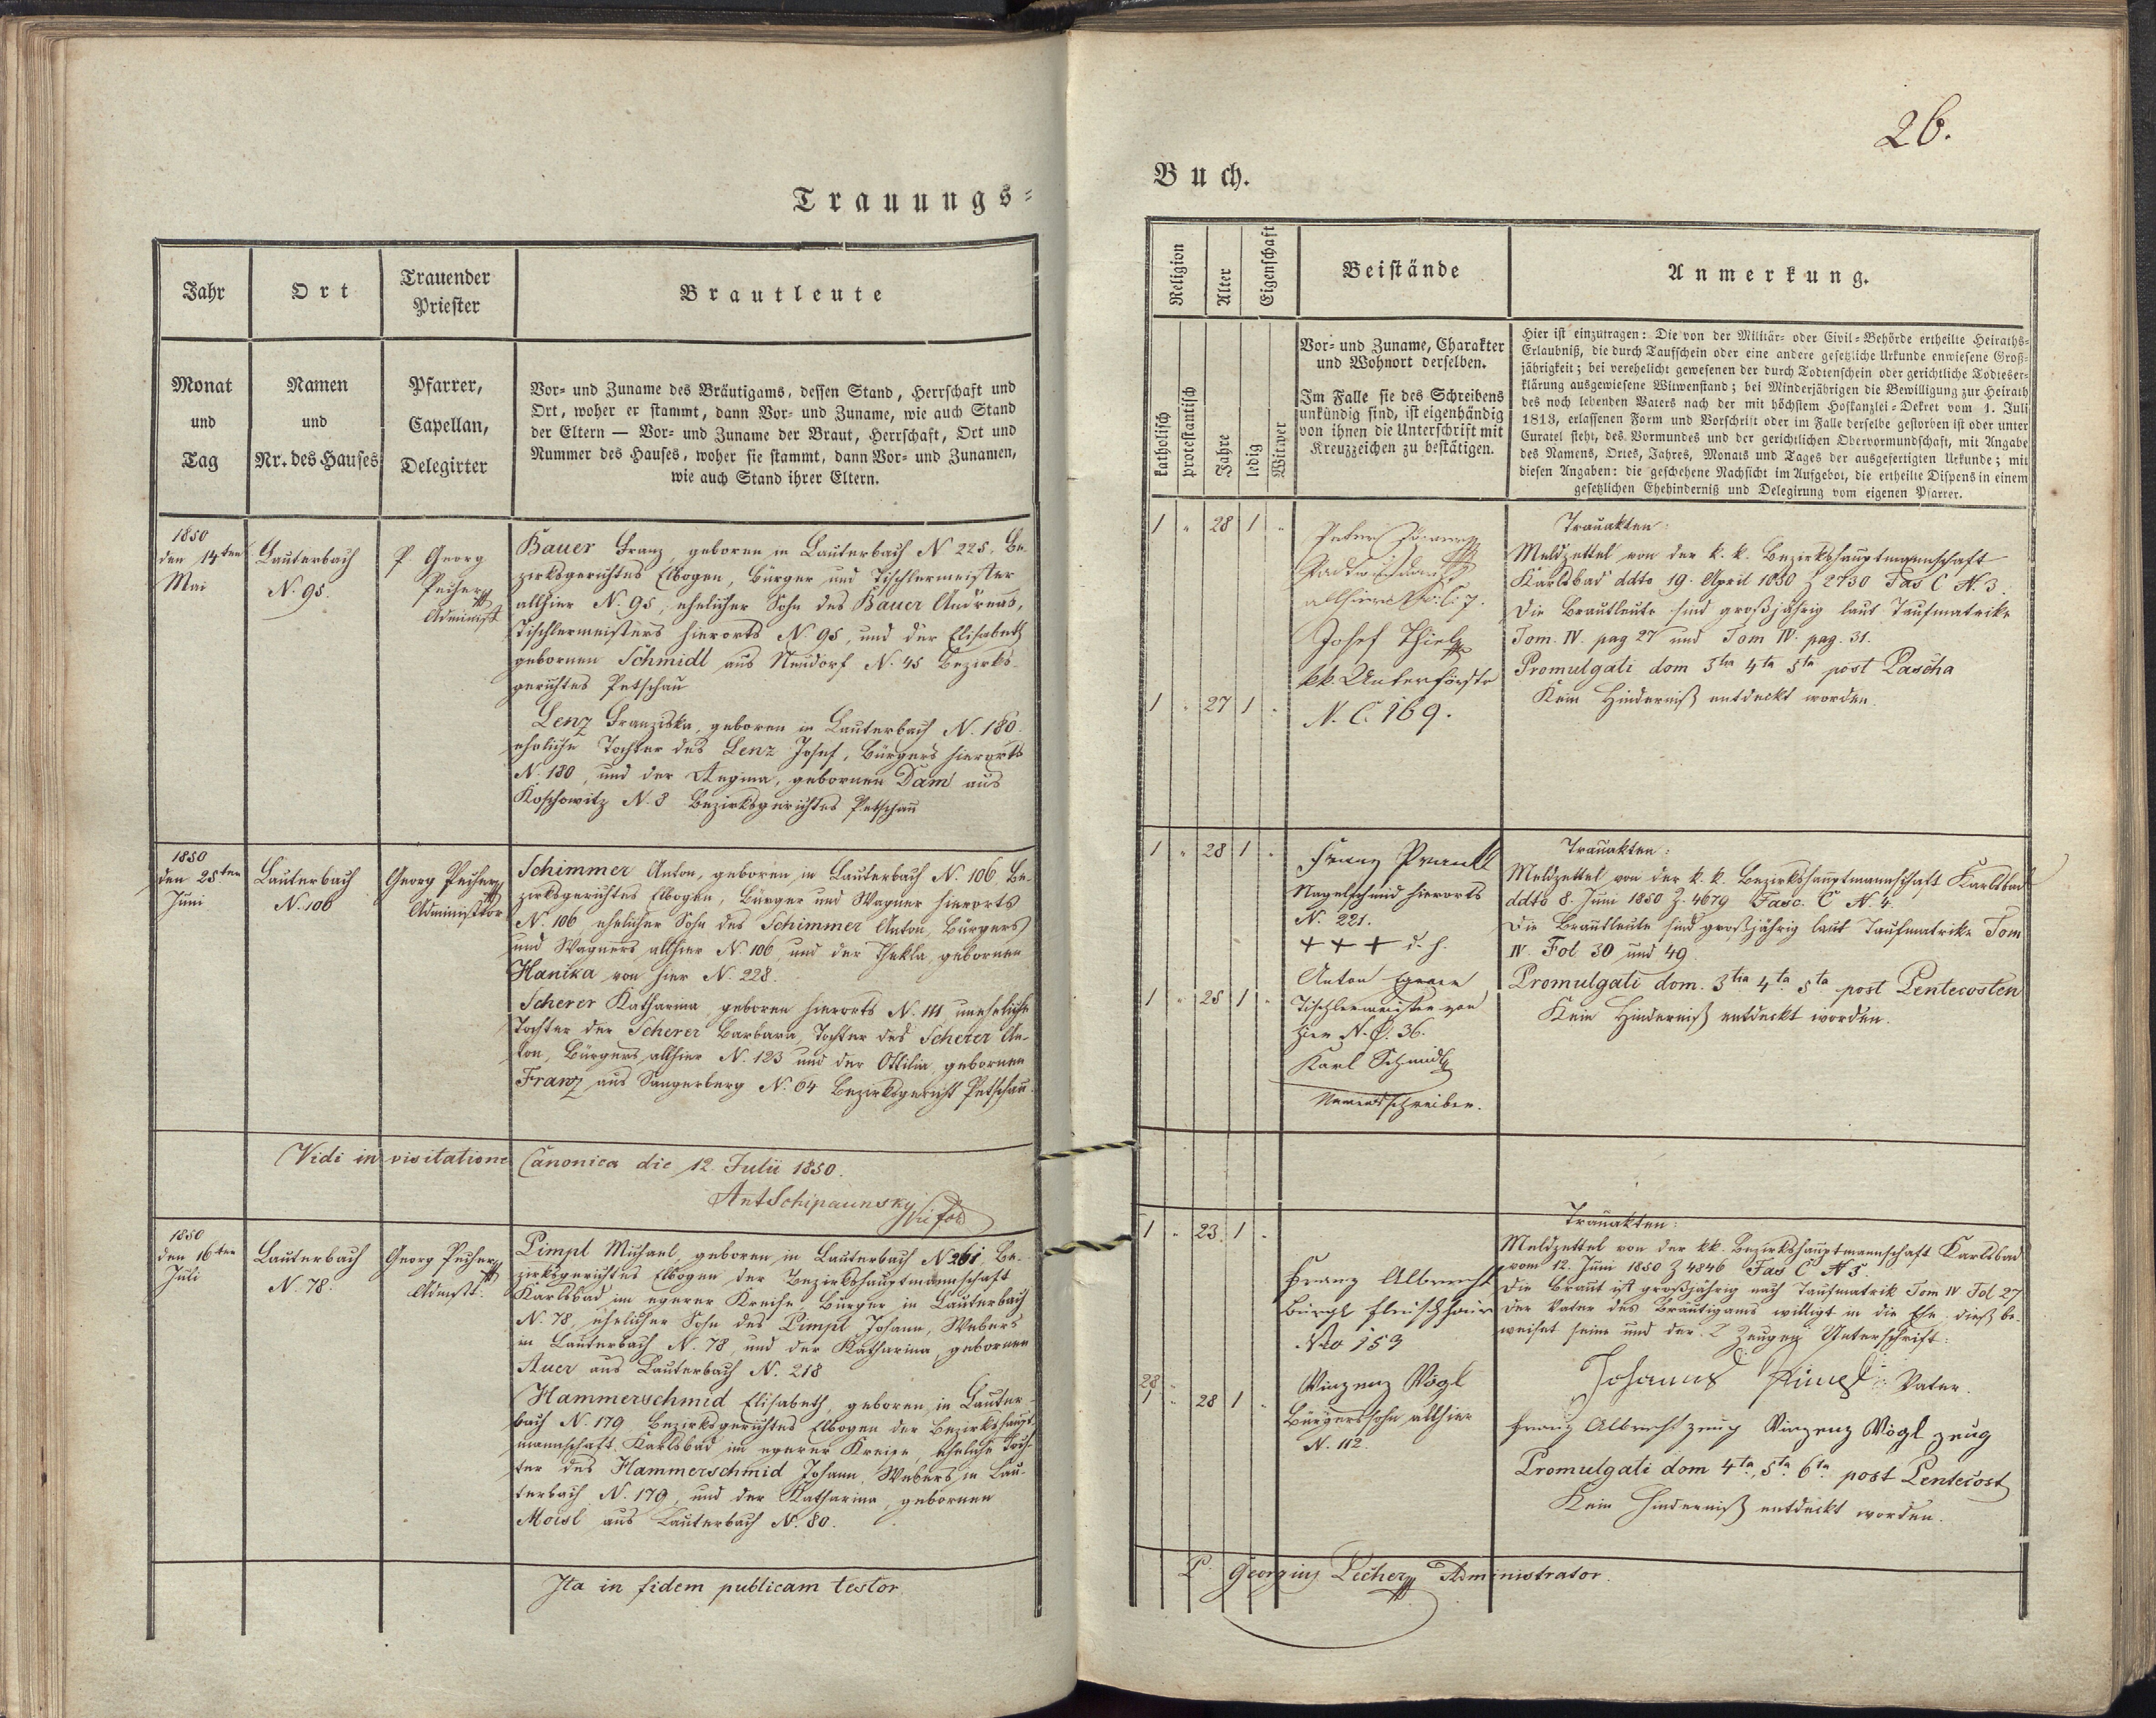 26.
Trauungs=
Buch.
Jahr
Ort
Trauender
Priester
Brautleute
Monat
und
Tag
Namen
und
Nr. des Hauses
Pfarrer,
Capellan,
Delegirter
Vor= und Zuname des Bräutigams, dessen Stand, Herrschaft und
Ort, woher er stammt, dann Vor= und Zuname, wie auch Stand
der Eltern — Vor= und Zuname der Braut, Herrschaft, Ort und
Nummer des Hauses, woher sie stammt, dann Vor= und Zunamen,
wie auch Stand ihrer Eltern.
Religion
Alter
Eigenschaft
Beistände
Anmerkung.
katholisch
protestantisch
Jahre
ledig
Witwer
Vor= und Zuname, Charakter
und Wohnort derselben.
Im Falle sie des Schreibens
unkündig sind, ist eigenhändig
von ihnen die Unterschrift mit
Kreuzzeichen zu bestätigen.
Hier ist einzutragen: Die von der Militär= oder Civil=Behörde ertheilte Heiraths=
Erlaubniß, die durch Taufschein oder eine andere gesetzliche Urkunde enwiesene Groß=
jährigkeit; bei verehelicht gewesenen der durch Todtenschein oder gerichtliche Todteser=
klärung ausgewiesene Witwenstand; bei Minderjährigen die Bewilligung zur Heirath
des noch lebenden Vaters nach der mit höchstem Hofkanzlei=Dekret vom 1. Juli
1813, erlassenen Form und Vorschrift oder im Falle derselbe gestorben ist oder unter
Curatel steht, des Vormundes und der gerichtlichen Obervormundschaft, mit Angabe
des Namens, Ortes, Jahres, Monats und Tages der ausgefertigten Urkunde; mit
diesen Angaben: die geschehene Nachsicht im Aufgebot, die ertheilte Dispens in einem
gesetzlichen Ehehinderniß und Delegirung vom eigenen Pfarrer.
1850
den 14ten
Mai
Lauterbach
N. 95.
P. Georg
Pecher
Administ
Bauer Franz, geboren in Lauterbach N 225, Be-
zirksgerichtes Elbogen, Bürger und Tischlermeister
allhier N. 95, ehelicher Sohn des Bauer Andreas,
Tischlermeisters hierorts N. 95, und der Elisabeth
gebornen Schmidl aus Neudorf N. 45 Bezirks-
gerichtes Petschau
Lenz Franziska, geboren in Lauterbach N. 180.
eheliche Tochter des Lenz Josef, Bürgers hierorts
N. 180, und der Regina, gebornen Dam aus
Koschowitz N. 8 Bezirksgerichtes Petschau
1 " 28 1 "
1 " 27 1 "
Josef Thiel
kk. Unterförster
N. C. 169.
Trauakten:
Meldzettel von der k. k. Bezirkshauptmannschaft
Karlsbad ddto 19. April 1850 Z 2730 Fas C N. 3.
Die Brautleute sind großjährig laut Taufmatrike
Tom. IV. pag 27 und Tom IV. pag. 31.
Promulgati dom 3tia 4ta 5ta post Pascha
Kein Hinderniß entdeckt worden.
1850
den 25ten
Juni
Lauterbach
N. 106
Georg Pecher
Administtor
Schimmer Anton, geboren in Lauterbach N. 106, Be-
zirksgerichtes Elbogen, Bürger und Wagner hierorts
N. 106, ehelicher Sohn des Schimmer Anton, Bürgers
und Wagners allhier N. 106, und der Thekla, gebornen
Hanika von hier N. 228.
Scherer Katharina, geboren hierorts N. 111, uneheliche
Tochter der Scherer Barbara, Tochter des Scherer An-
ton, Bürgers allhier N. 123 und der Ottilia, gebornen
Franz aus Sangerberg N. 64 Bezirksgericht Petschau.
1 " 28 1 "
1 " 25 1 "
Franz Prantl
Nagelschmid hierorts
N. 221.
+ + + d. h.
Anton
Tischlermeister von
hier N. C. 36.
Karl Schmidl
Namensschreiber.
Trauakten:
Meldzettel von der k. k. Bezirkshauptmannschaft Karlsbad
ddto 8. Juni 1850 Z. 4679 Fasc. C N. 4.
Die Brautleute sind großjährig laut Taufmatrike Tom
IV. Fol 30 und 49.
Promulgati dom. 3tia 4ta 5ta post Pentecosten
Kein Hinderniß entdeckt worden.
Vidi in visitatione Canonica die 12. Julii 1850.
Ant Schipaunsky
1850
den 16ten
Juli
Lauterbach
N. 78.
Georg Pecher
Admstt.
Pimpl Michael, geboren in Lauterbach N 261, Be-
zirksgerichtes Elbogen der Bezirkshauptmannschaft
Karlsbad im egerer Kreise, Bürger in Lauterbach
N. 78, ehelicher Sohn des Pimpl Johann, Webers
in Lauterbach N. 78, und der Katharina, gebornen
Auer aus Lauterbach N. 218
Hammerschmid Elisabeth, geboren in Lauter-
bach N. 179 Bezirksgerichtes Elbogen der Bezirkshaupt-
mannschaft Karlsbad im egerer Kreise, eheliche Toch-
ter des Hammerschmid Johann, Webers in Lau-
terbach N. 179, und der Katharina, gebornen
Moisl aus Lauterbach N. 80.
1 " 23 1 "
28
1 " 28 1 "
Franz Albrecht
Bürgl Fleischhauer
Nro 153
Vinzenz Vogl
Bürgerssohn allhier
N. 112.
Trauakten:
Meldzettel von der kk. Bezirkshauptmannschaft Karlsbad
vom 12. Juni 1850 Z 4846 Fas C N 5.
Die Braut ist großjährig nach Taufmatrik Tom IV Fol 27
Der Vater des Bräutigams willigt in die Ehe, dieß be-
weiset seine und der 2 Zeugen Unterschrift:
Johannes Pimpl Vater.
Franz Albrecht zeug Vinzenz Vogl zeug
Promulgati dom 4ta, 5ta 6ta post Pentecost
Kein Hinderniß entdeckt worden.
Ita in fidem publicam testor.
P. Georgius Pecher Administrator.